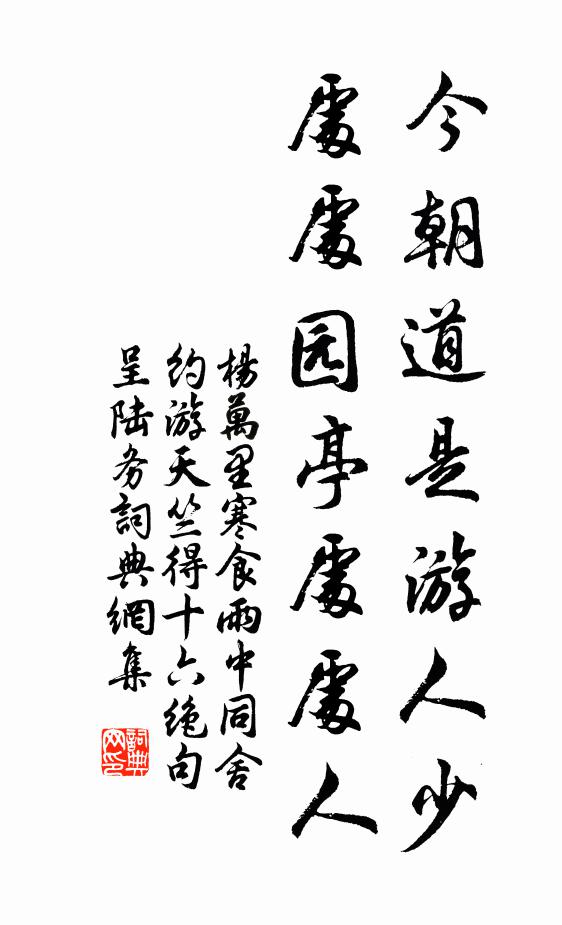 今朝道是游人少
處處园亭處處人
楊萬里寒食雨中同舍
约游天竺得十六绝句
呈陆务詞典網集
詞典
网印